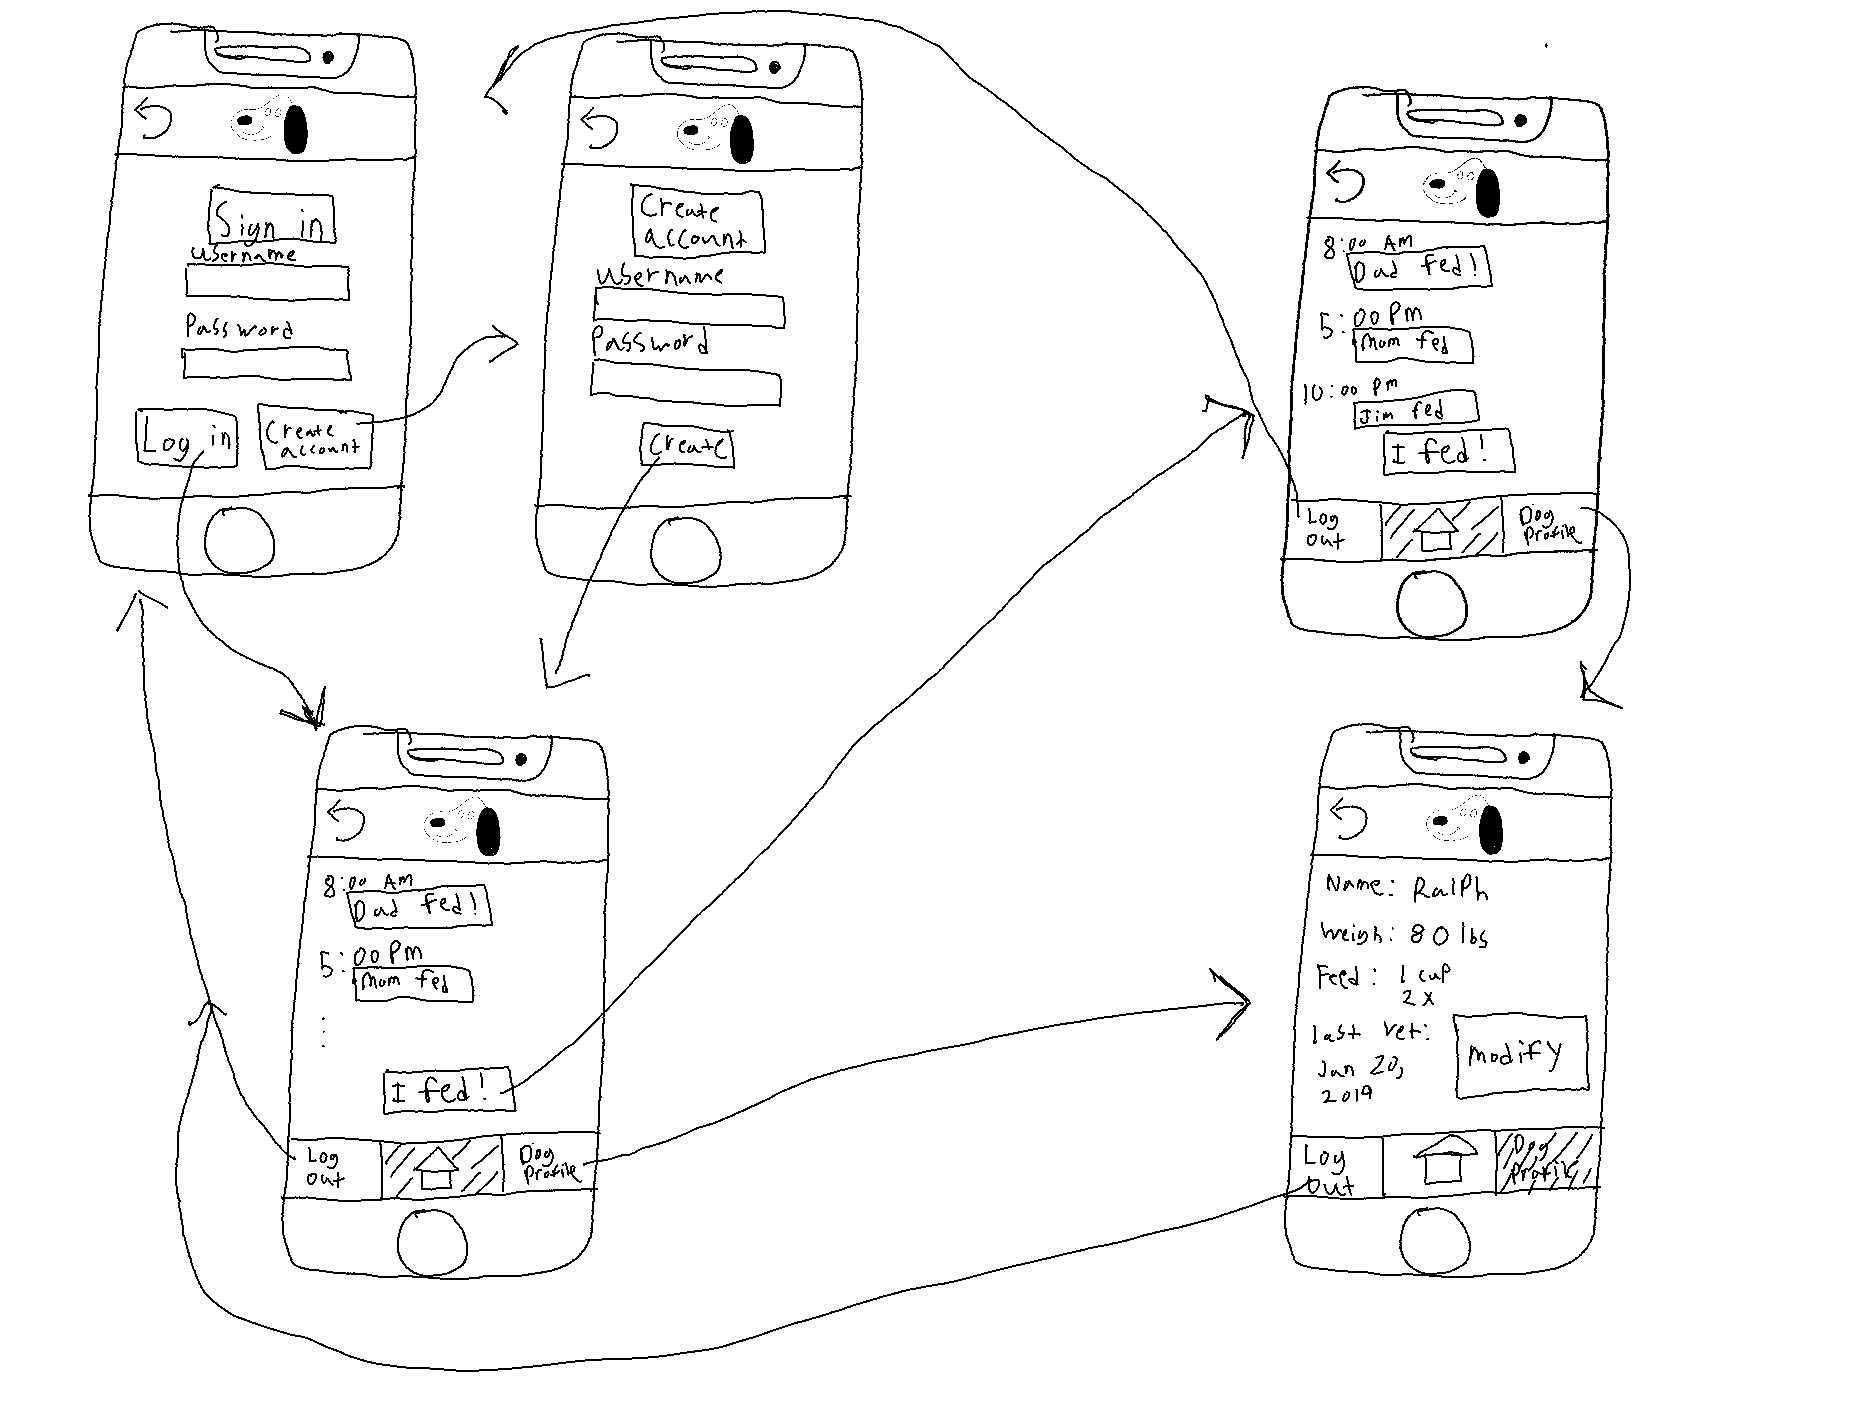 Sign in
username
Password
Log in
Create
account
Create
account
username
Password
Create
8:00 AM
Dad fed!
5:00 PM
Mom fed
10:00 PM
Jim fed
I fed!
Log
Out
Dog
Profile
8:00 AM
Dad fed!
5:00 PM
Mom fed
...
I fed!
Log
Out
Dog
Profile
Name: Ralph
Weigh: 80 lbs
Feed: 1 cup
2x
last vet:
Jan 20,
2019
Modify
Log
Out
Dog
Profile